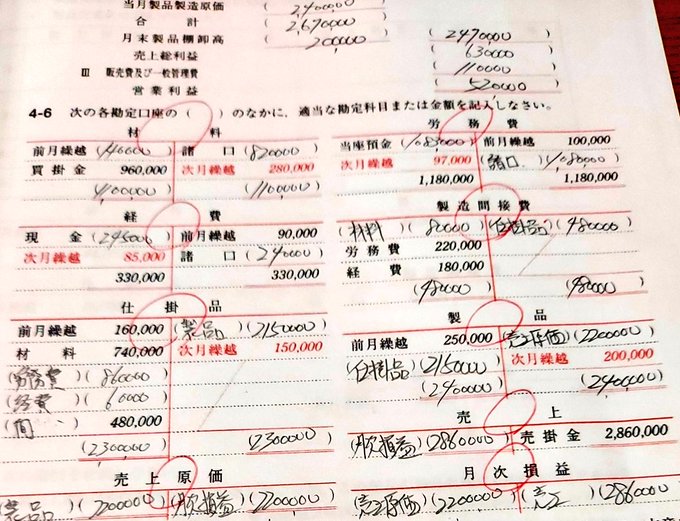 当月製品製造原価 (2,400,000)
合計 2,670,000
月末製品棚卸高 200,000 (2,470,000)
売上総利益 (630,000)
Ⅲ 販売費及び一般管理費 (110000)
営業利益 (520000)
4-6 次の各勘定口座の( )のなかに、適当な勘定科目または金額を記入しなさい。
材料
前月繰越 (140000) 諸口 (820000)
買掛金 960,000 次月繰越 280,000
(1100000) (1100000)
労務費
当座預金 (1083000) 前月繰越 100,000
次月繰越 97,000 (諸口) (1080000)
1,180,000 1,180,000
経費
現金 (245000) 前月繰越 90,000
次月繰越 85,000 諸口 (240000)
330,000 330,000
製造間接費
(材料) (80000) (仕掛品) (480000)
労務費 220,000
経費 180,000
(480000) (480000)
仕掛品
前月繰越 160,000 (製品) (2150000)
材料 740,000 次月繰越 150,000
(労務費) (860000)
(経費) (60000)
(間 〃 ) 480,000
(2300000) (2300000)
製品
前月繰越 250,000 (売上原価) (2200000)
(仕掛品) (2150000) 次月繰越 200,000
(2400000) (2400000)
売上
(月次損益) (2860000) 売掛金 2,860,000
売上原価
(製品) (2200000) (月次損益) (2200000)
月次損益
(売上原価) (2200000) (売上) (2860000)